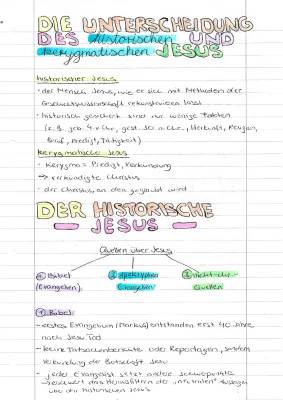 DIE UNTERSCHEIDUNG
DES historischen UND
kerygmatischen JESUS
historischer Jesus
· der Mensch Jesus, wie er sich mit Methoden der
Geschichtswissenschaft rekonstruieren lässt
· historisch gesichert sind nur wenige Fakten
(z.B. geb. 4 v.Chr., gest. 30 n.Chr., Herkunft,
Beruf, Predigt, Tätigkeit)
kerygmatische Jesus
· Kerygma = Predigt, Verkündung
→ verkündigte Christus
· der Christus, an den geglaubt wird
DER HISTORISCHE
- JESUS -
Quellen über Jesus
① Bibel
(Evangelien)
② apokryphen
Evangelien
③ nicht-chr.
Quellen
① Bibel:
- erstes Evangelium (Markus) entstanden erst 40 Jahre
nach Jesu Tod
- keine Tatsachenberichte oder Reportagen, sondern
Verkündung der Botschaft Jesu
- jeder Evangelist setzt andere Schwerpunkte
→ erschwert das Herausfiltern der „neutralen" Aussagen
über den historischen Jesus